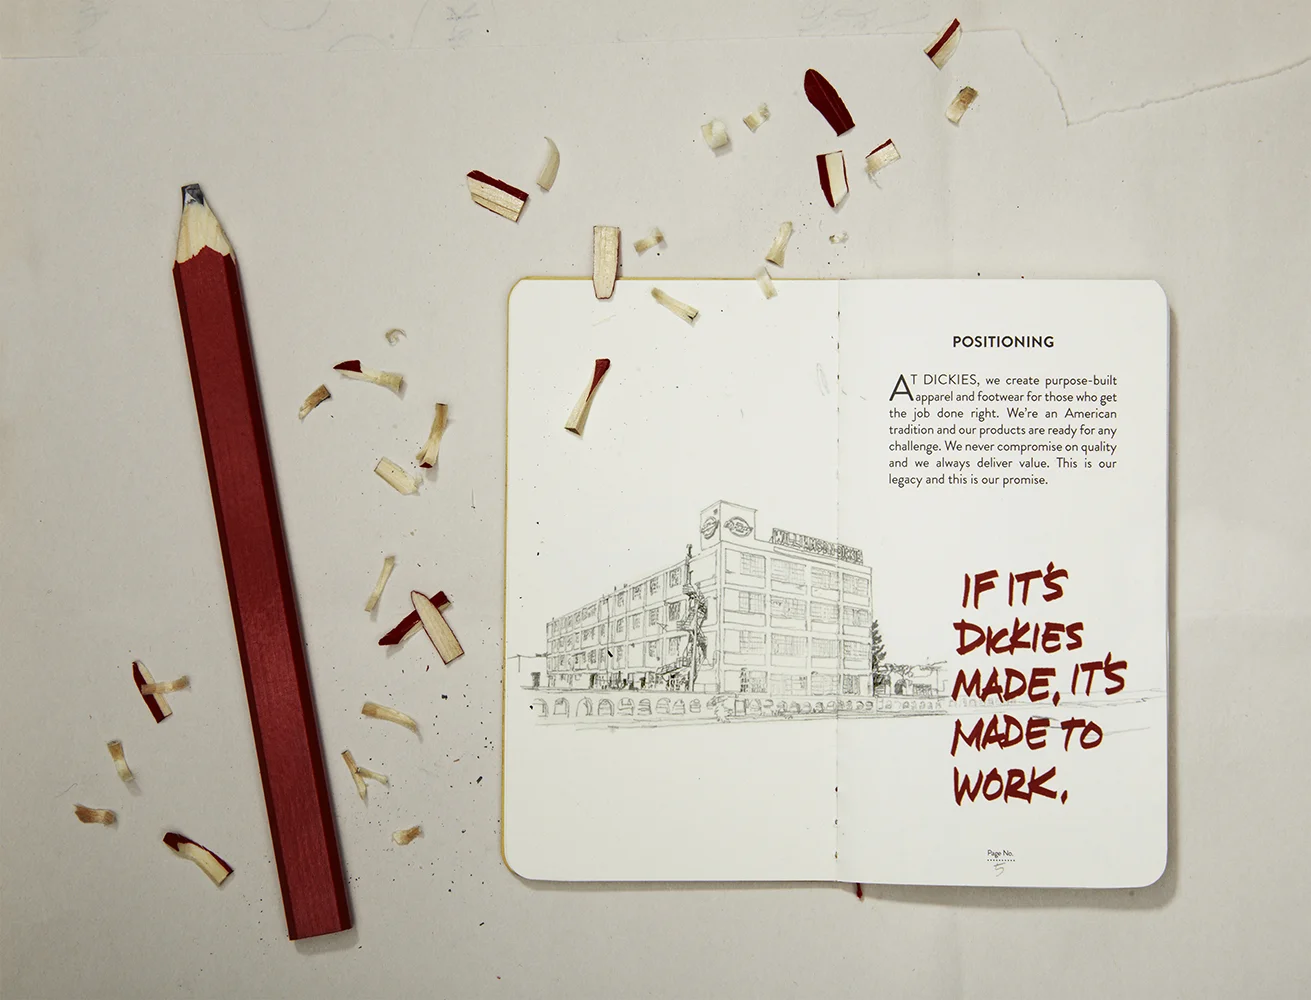 WILLIAMSON-DICKIE
POSITIONING
AT DICKIES, we create purpose-built
apparel and footwear for those who get
the job done right. We're an American
tradition and our products are ready for any
challenge. We never compromise on quality
and we always deliver value. This is our
legacy and this is our promise.
IF IT'S
DICKIES
MADE, IT'S
MADE TO
WORK.
Page No.
5